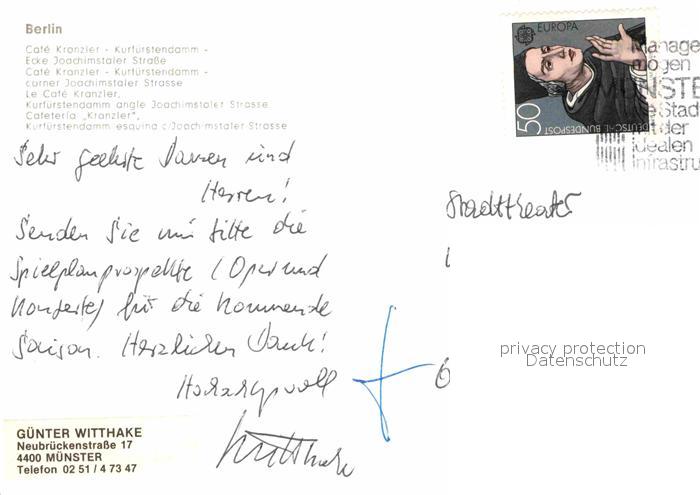 Berlin
Café Kranzler - Kurfürstendamm -
Ecke Joachimstaler Straße
Café Kranzler - Kurfürstendamm -
corner Joachimstaler Strasse
Le Café Kranzler,
Kurfürstendamm angle Joachimstaler Strasse
Cafeteria „Kranzler",
Kurfürstendamm esquina c/Joachimstaler-Strasse
Sehr geehrte Damen und
Herren!
Senden Sie mir bitte die
Spielplanprospekte (Oper und
Konzerte) für die kommende
Saison. Herzlichen Dank!
Hochachtungsvoll
Witthake
GÜNTER WITTHAKE
Neubrückenstraße 17
4400 MÜNSTER
Telefon 02 51 / 4 73 47
EUROPA
50
DEUTSCHE BUNDESPOST
Manage
mögen
MÜNSTE
e Stad
it der
idealen
Infrastru
Stadttheater
6
privacy protection
Datenschutz